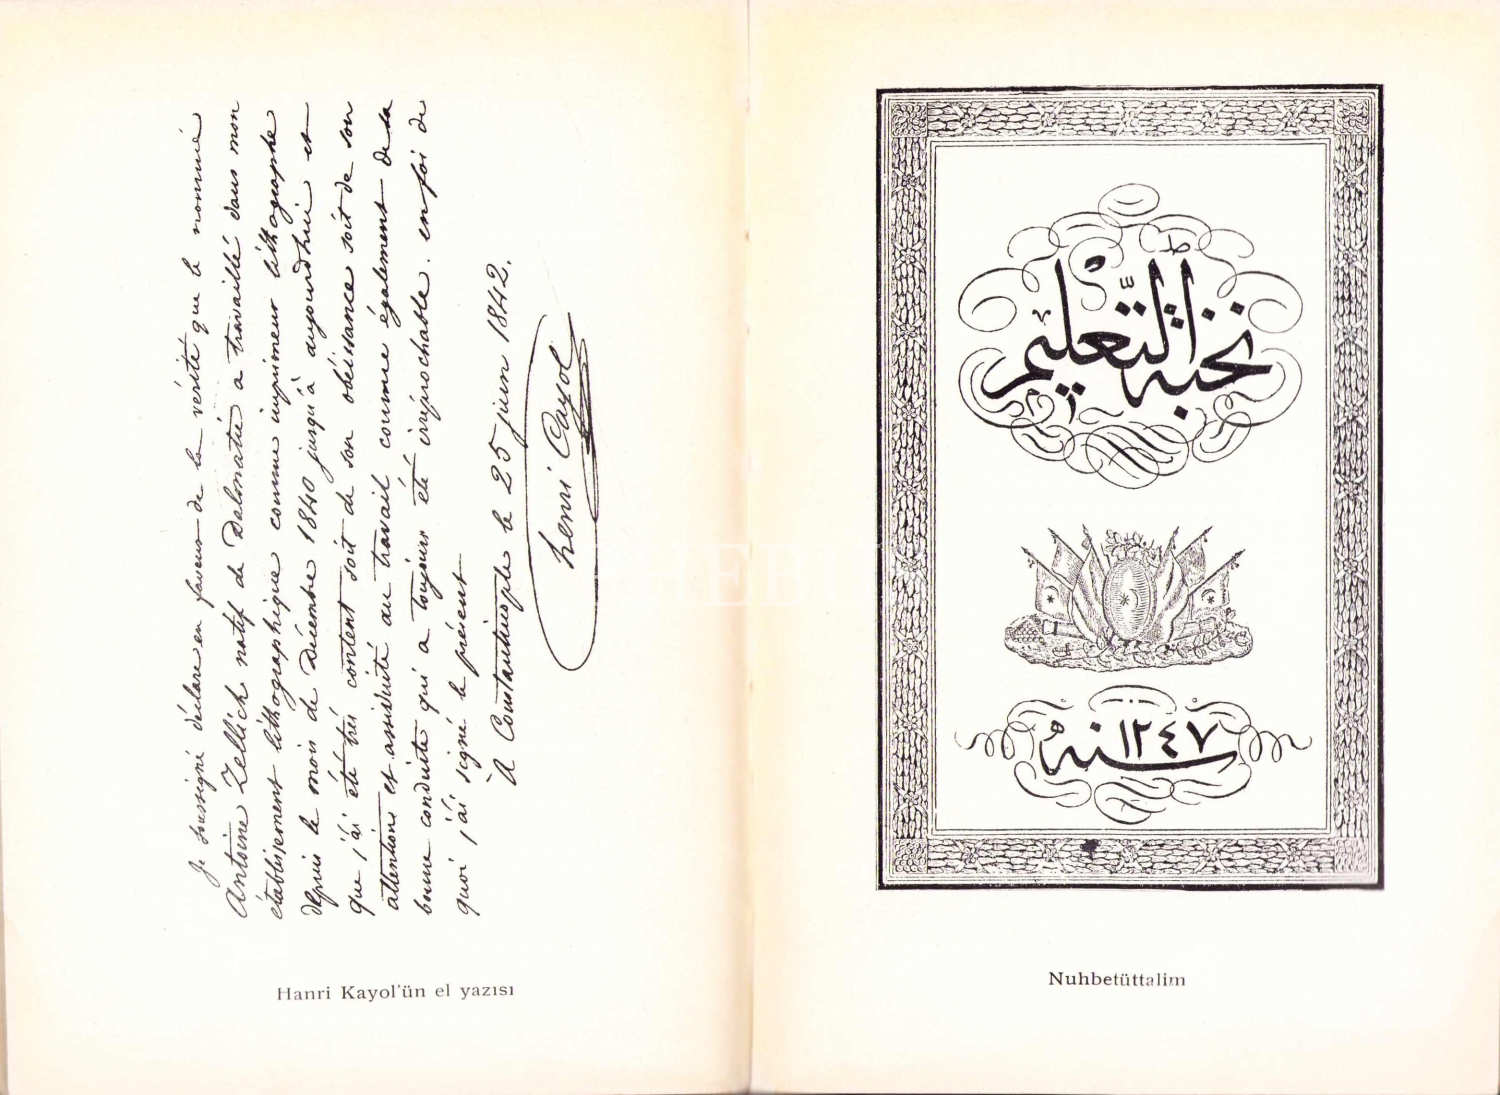 Je soussigné déclare en faveur de la vérité que le nommé
Antoine Zellich natif de Dalmatie a travaillé dans mon
établisement lithographique comme imprimeur lithographe
depuis le mois de Décembre 1840 jusqu'à aujourdhui et
que j'ai eté très content soit de son obeissance soit de son
attentions et assiduité au travail comme également de sa
bonne conduite qui a toujours eté irréprochable. en foi de
quoi j'ai signé le présent
À Constantinople le 25 juin 1842.
henri Cayol
Hanri Kayol'ün el yazısı
نخبة التعليم
سنه ١٢٤٧
Nuhbetüttalim